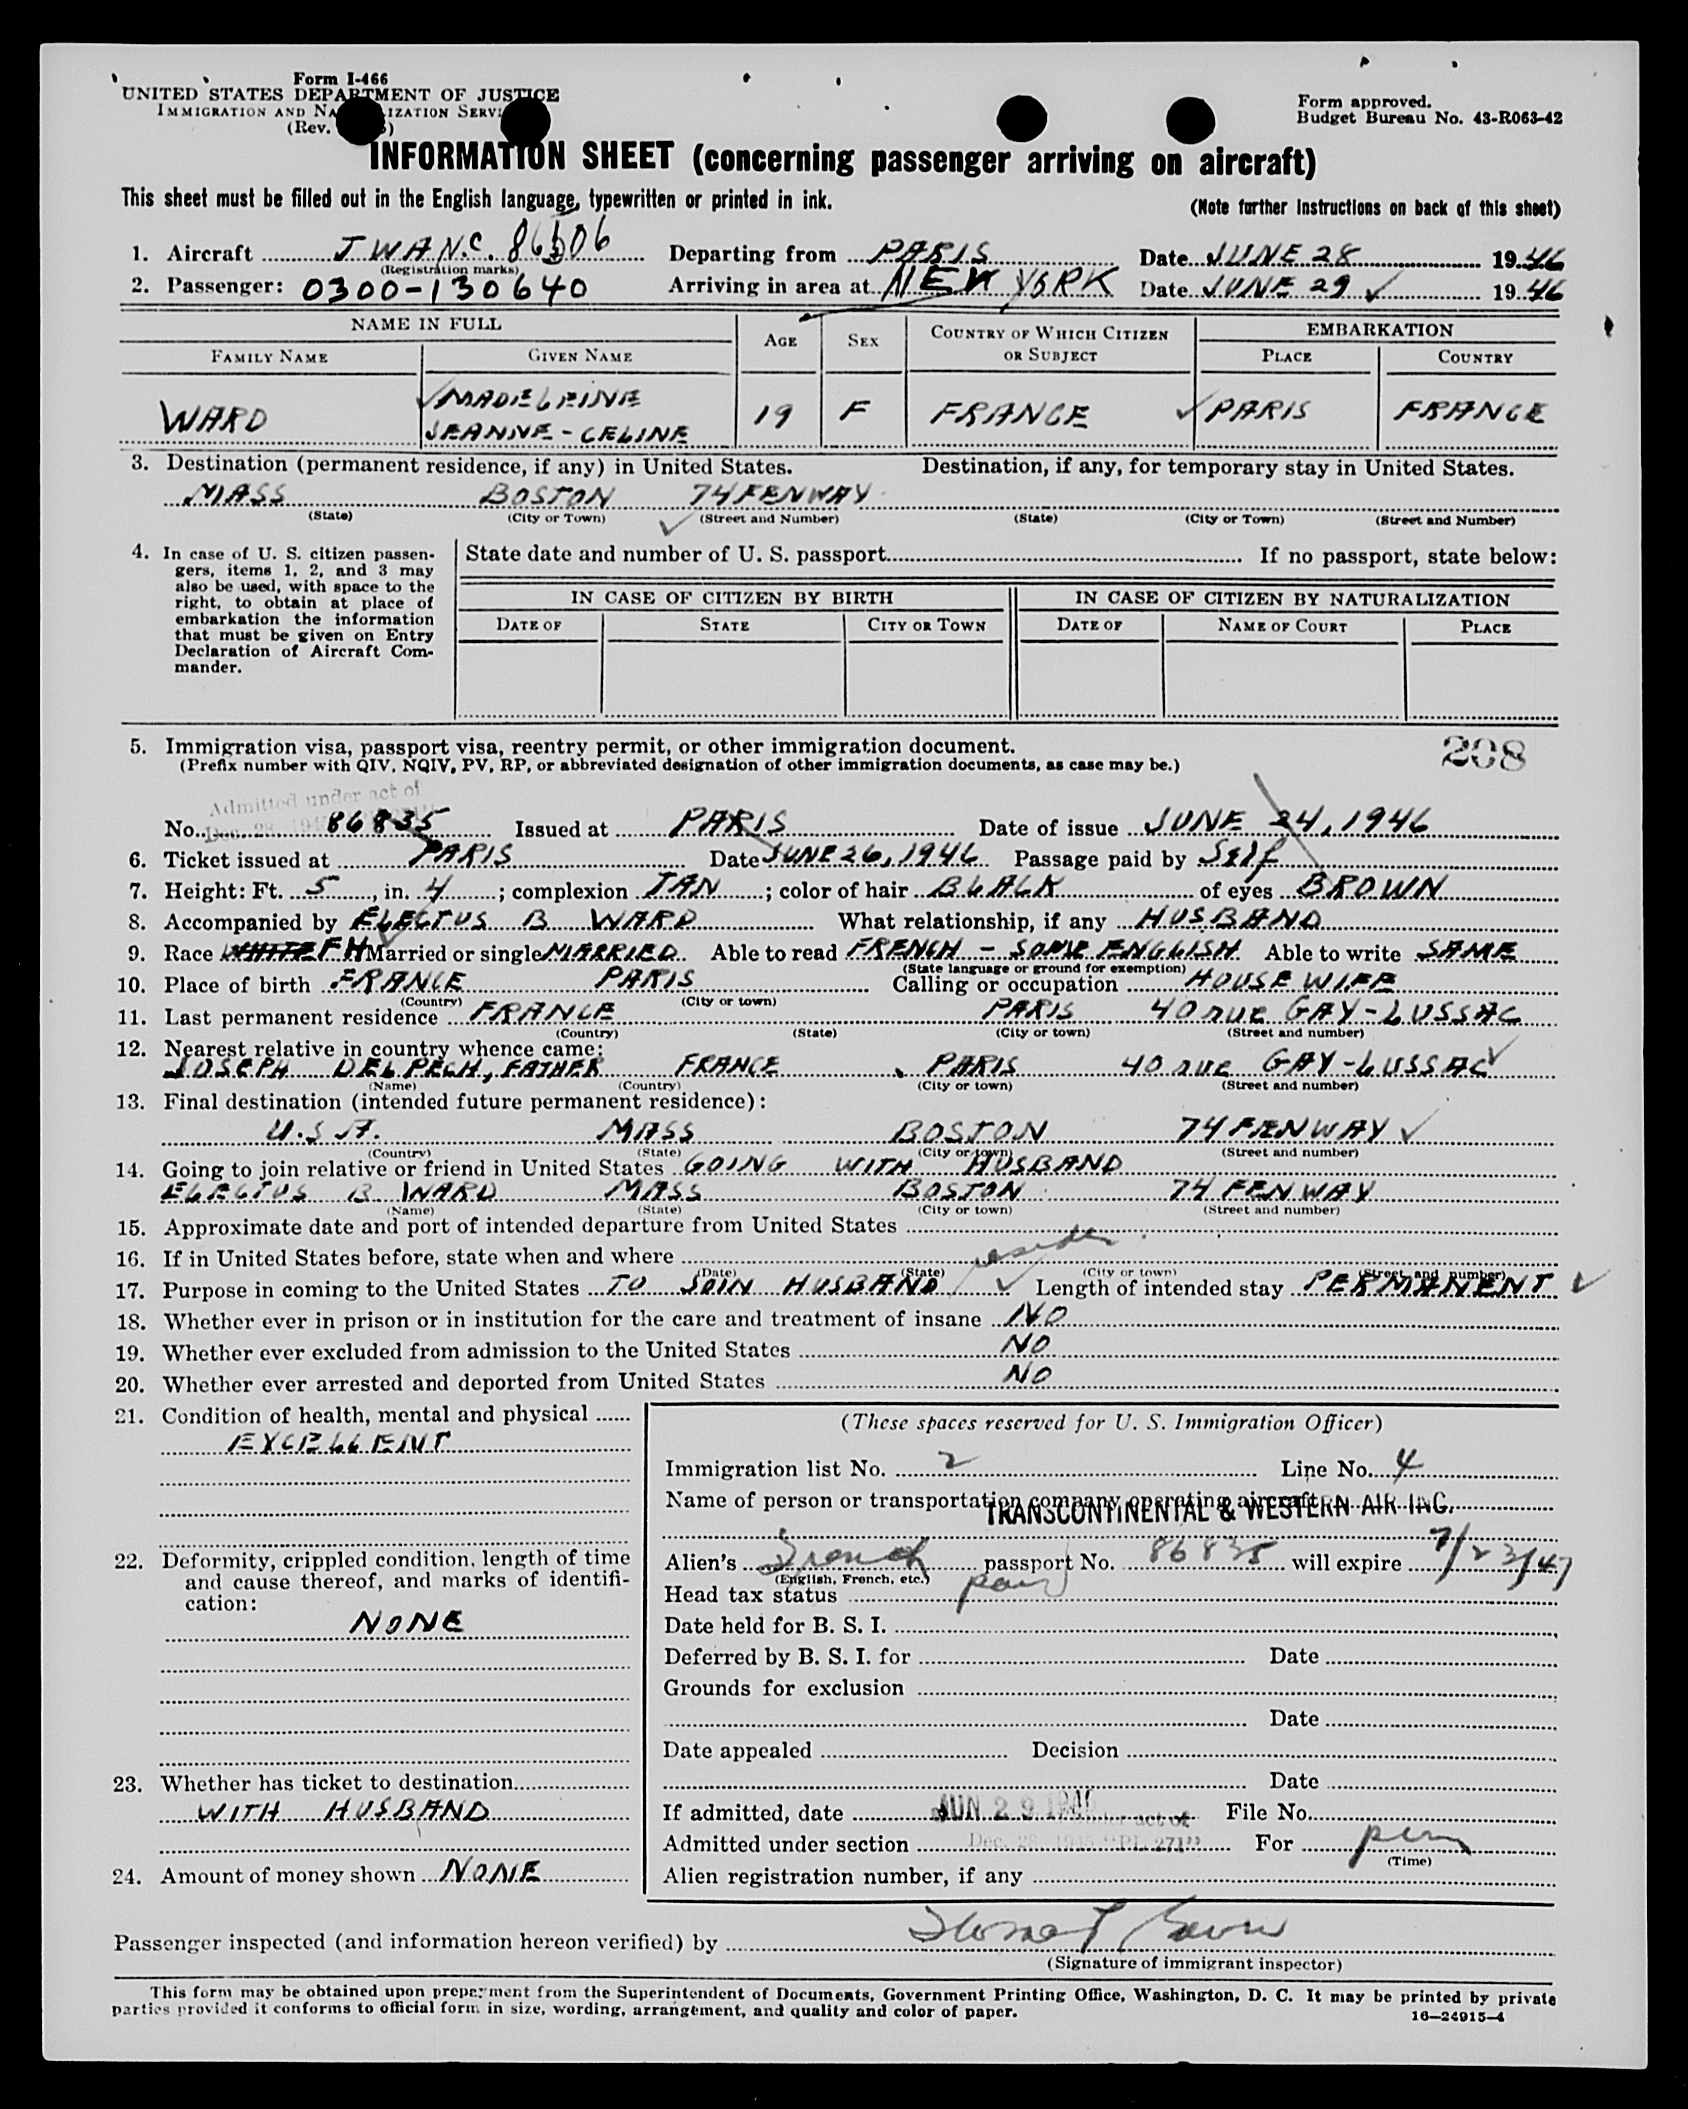 Form I-466
UNITED STATES DEPARTMENT OF JUSTICE
IMMIGRATION AND NA IZATION SERVI
(Rev. )
Form approved.
Budget Bureau No. 43-R063-42
INFORMATION SHEET (concerning passenger arriving on aircraft)
This sheet must be filled out in the English language, typewritten or printed in ink.
(Note further instructions on back of this sheet)
1. Aircraft TWA N.C. 86506 Departing from PARIS Date JUNE 28 1946
(Registration marks)
2. Passenger: 0300-130640 Arriving in area at NEW YORK Date JUNE 29 1946
NAME IN FULL AGE SEX COUNTRY OF WHICH CITIZEN OR SUBJECT EMBARKATION
FAMILY NAME GIVEN NAME PLACE COUNTRY
WARD MADELEINE JEANNE-CELINE 19 F FRANCE PARIS FRANCE
3. Destination (permanent residence, if any) in United States. Destination, if any, for temporary stay in United States.
MASS BOSTON 74 FENWAY
(State) (City or Town) (Street and Number) (State) (City or Town) (Street and Number)
4. In case of U. S. citizen passen-
gers, items 1, 2, and 3 may
also be used, with space to the
right, to obtain at place of
embarkation the information
that must be given on Entry
Declaration of Aircraft Com-
mander.
State date and number of U. S. passport If no passport, state below:
IN CASE OF CITIZEN BY BIRTH IN CASE OF CITIZEN BY NATURALIZATION
DATE OF STATE CITY OR TOWN DATE OF NAME OF COURT PLACE
5. Immigration visa, passport visa, reentry permit, or other immigration document.
(Prefix number with QIV, NQIV, PV, RP, or abbreviated designation of other immigration documents, as case may be.)
208
Admitted under act of
No. 86835 Issued at PARIS Date of issue JUNE 24, 1946
6. Ticket issued at PARIS Date JUNE 26, 1946 Passage paid by Self
7. Height: Ft. 5, in. 4; complexion TAN; color of hair BLACK of eyes BROWN
8. Accompanied by ELECTUS B WARD What relationship, if any HUSBAND
9. Race WHITE FH Married or single MARRIED Able to read FRENCH - SOME ENGLISH Able to write SAME
(State language or ground for exemption)
10. Place of birth FRANCE PARIS Calling or occupation HOUSE WIFE
(Country) (City or town)
11. Last permanent residence FRANCE PARIS 40 rue GAY-LUSSAC
(Country) (State) (City or town) (Street and number)
12. Nearest relative in country whence came:
JOSEPH DELPECH, FATHER FRANCE PARIS 40 rue GAY-LUSSAC
(Name) (Country) (City or town) (Street and number)
13. Final destination (intended future permanent residence):
U.S.A. MASS BOSTON 74 FENWAY
(Country) (State) (City or town) (Street and number)
14. Going to join relative or friend in United States GOING WITH HUSBAND
ELECTUS B WARD MASS BOSTON 74 FENWAY
(Name) (State) (City or town) (Street and number)
15. Approximate date and port of intended departure from United States
16. If in United States before, state when and where
(Date) (State) (City or town) (Street and number)
17. Purpose in coming to the United States TO JOIN HUSBAND Length of intended stay PERMANENT
reside
18. Whether ever in prison or in institution for the care and treatment of insane NO
19. Whether ever excluded from admission to the United States NO
20. Whether ever arrested and deported from United States NO
21. Condition of health, mental and physical
EXCELLENT
22. Deformity, crippled condition, length of time
and cause thereof, and marks of identifi-
cation:
NONE
23. Whether has ticket to destination
WITH HUSBAND
24. Amount of money shown NONE
(These spaces reserved for U. S. Immigration Officer)
Immigration list No. 2 Line No. 4
Name of person or transportation company operating aircraft
TRANSCONTINENTAL & WESTERN AIR INC.
Alien's French passport No. 86835 will expire 7/23/47
(English, French, etc.)
Head tax status
Date held for B. S. I.
Deferred by B. S. I. for Date
Grounds for exclusion
Date
Date appealed Decision
Date
If admitted, date JUN 29 1946 File No.
under act of
Admitted under section Dec. 28, 1945 "PL 271" For perm
(Time)
Alien registration number, if any
Passenger inspected (and information hereon verified) by
(Signature of immigrant inspector)
This form may be obtained upon prepayment from the Superintendent of Documents, Government Printing Office, Washington, D. C. It may be printed by private
parties provided it conforms to official form in size, wording, arrangement, and quality and color of paper.
16—24915-4